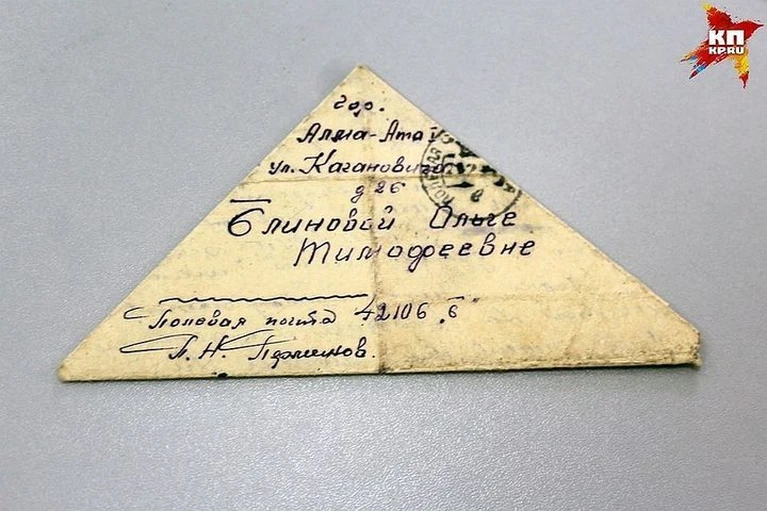 КП
KP.RU
гор.
Алма-Ата
ул. Кагановича
д 26
Блиновой Ольге
Тимофеевне
Полевая почта 42106 б
П. Н. Перминов.
ПОЛЕВАЯ